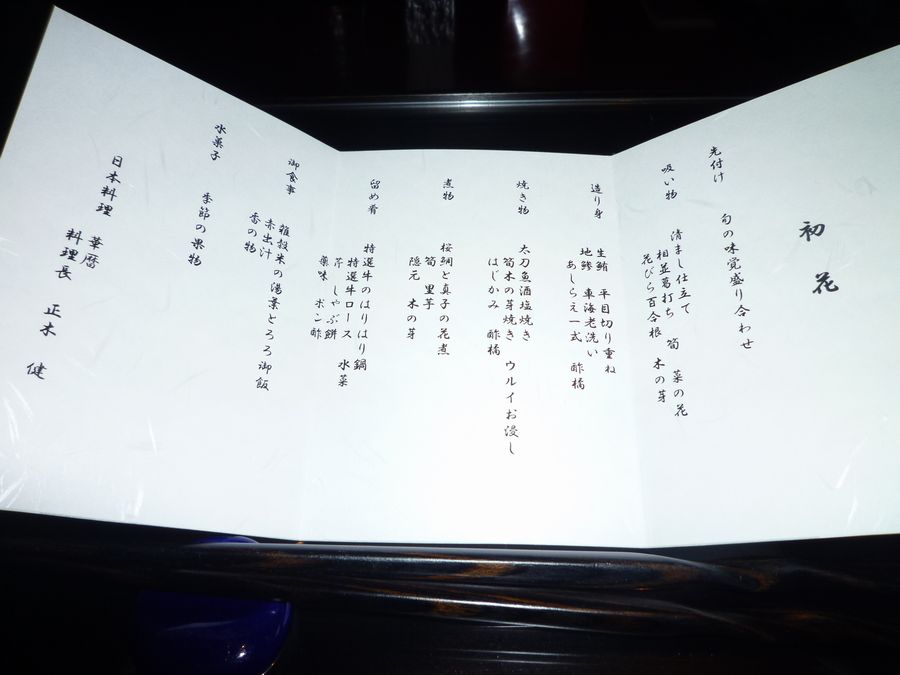 初花
先付け
旬の味覚盛り合わせ
吸い物
清まし仕立て 筍 菜の花
相並葛打ち 木の芽
花びら百合根
造り身
生鮪 平目切り重ね
地鯵 車海老洗い
あしらえ一式 酢橘
焼き物
太刀魚酒塩焼き
筍木の芽焼き ウルイお浸し
はじかみ 酢橘
煮物
桜鯛と真子の花煮
筍 里芋
隠元 木の芽
留め肴
特選牛のはりはり鍋
特選牛ロース 水菜
芹 しゃぶ餅
薬味 ポン酢
御食事
雑穀米の湯葉とろろ御飯
赤出汁
香の物
水菓子
季節の果物
日本料理 華暦
料理長 正木 健